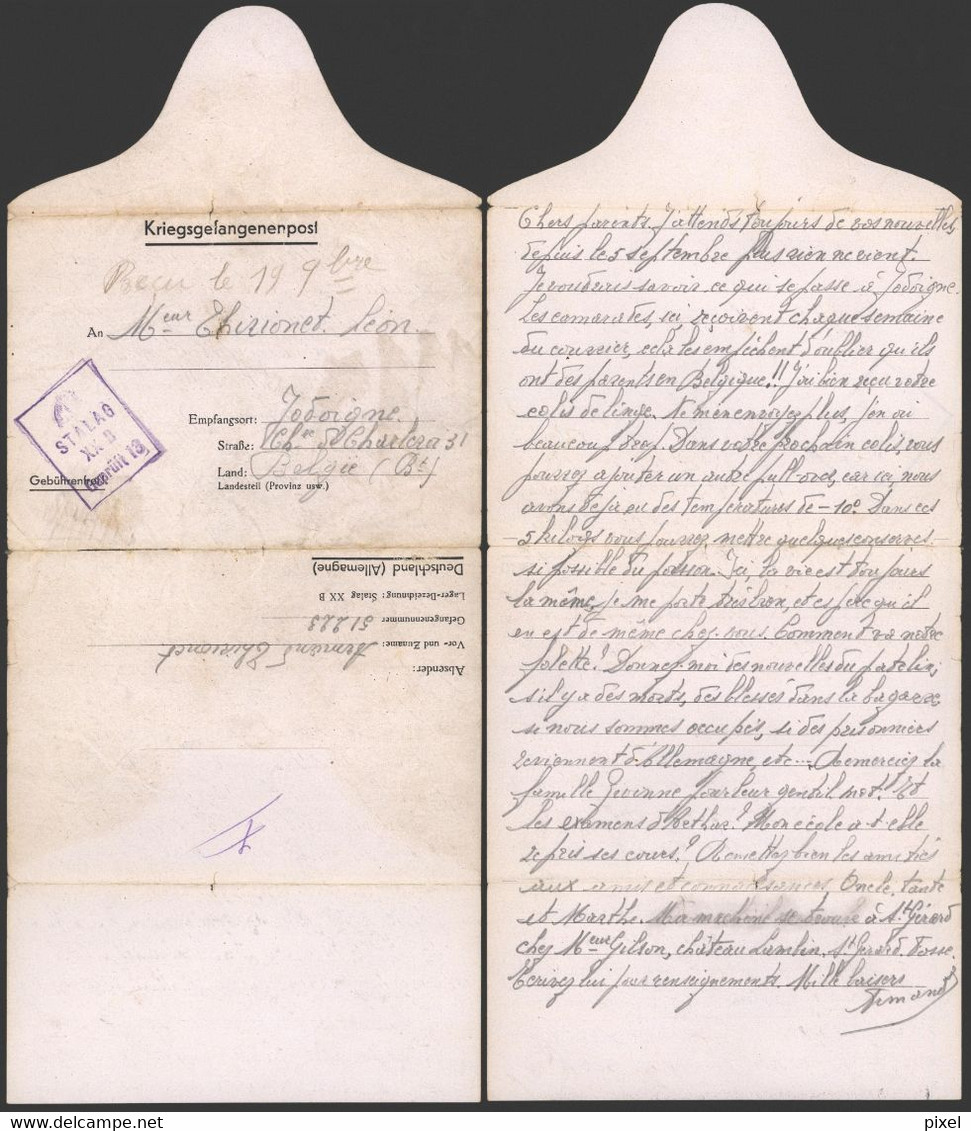 Kriegsgefangenenpost
Reçu le 19 9bre
An Meur Thirionet Léon.
STALAG
XX B
Geprüft 13
Empfangsort: Jodoigne
Straße: Chée de Charleroi 31
Gebührenfrei!
Land: Belgie (Bt)
Landesteil (Provinz usw.)
Deutschland (Allemagne)
Lager-Bezeichnung: Stalag XX B
Gefangenennummer 51223
Vor- und Zuname: Armand Thirionet
Absender:
Chers parents. J'attends toujours de vos nouvelles,
depuis le 5 septembre plus rien ne vient.
Je voudrais savoir ce qui se passe à Jodoigne.
Les camarades, ici, reçoivent chaque semaine
du courrier, cela les empêchent d'oublier qu'ils
ont des parents en Belgique!! J'ai bien reçu votre
colis de linge. Ne m'en envoyez plus, j'en ai
beaucoup trop. Dans votre prochain colis, vous
pourrez ajouter un autre pull-over, car ici, nous
avons déjà eu des températures de -10°. Dans ces
5 kilogs vous pourrez mettre quelques conserves.
si possible du poisson. Ici, la vie est toujours
la même, je me porte très bien, et espère qu'il
en est de même chez vous. Comment va notre
Donnez-moi des nouvelles du patelin,
s'il y a des morts, des blessés dans la bagarre,
si nous sommes occupés, si des prisonniers
reviennent d'Allemagne, etc.... Remerciez la
famille pour leur gentil mot! Et
les examens d'? Mon école a-t-elle
repris ses cours? Remettez bien les amitiés
aux amis et connaissances, Oncle, tante
et Marthe. Ma machine se trouve à St. Gérard
chez Meur Gilson, château Lambin, St Gérard. Fosse.
Ecrivez lui pour renseignements. Mille baisers
Armand
pixel